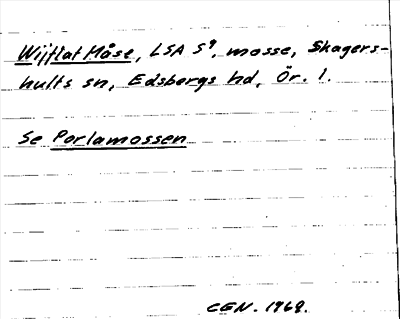 Wijflat Måse, LSA S⁹, mosse, Skagers-
hults sn, Edsbergs hd, Ör. l.
Se Porlamossen
CEN. 1969.